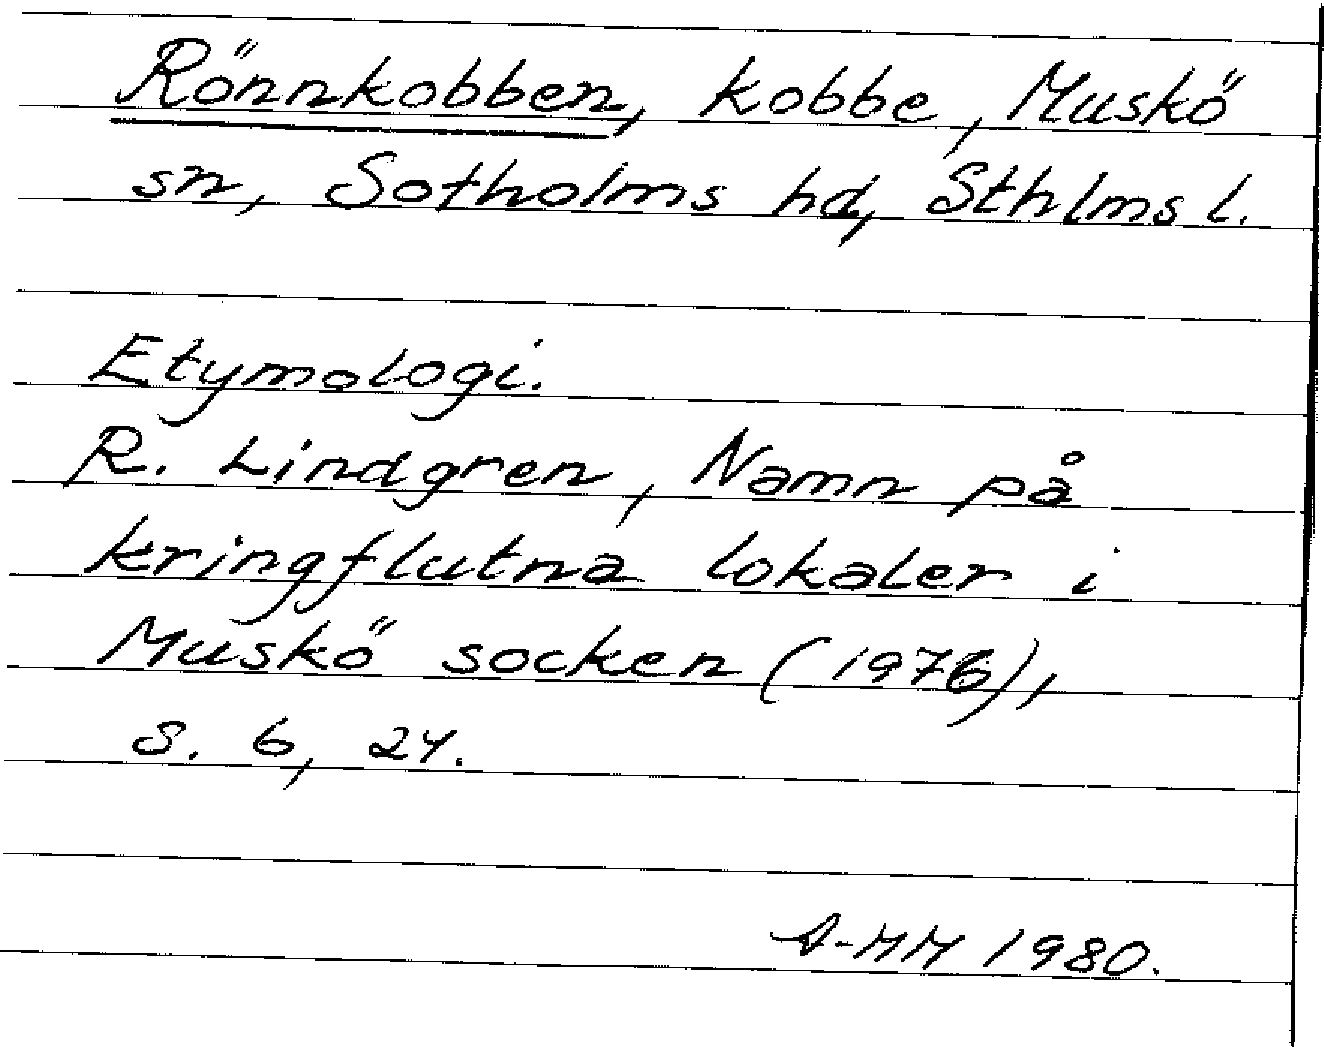 Rönnkobben, kobbe, Muskö
sn, Sotholms hd, Sthlms l.
Etymologi.
R. Lindgren, Namn på
kringflutna lokaler i
Muskö socken (1976),
s. 6, 24.
A-MM 1980.